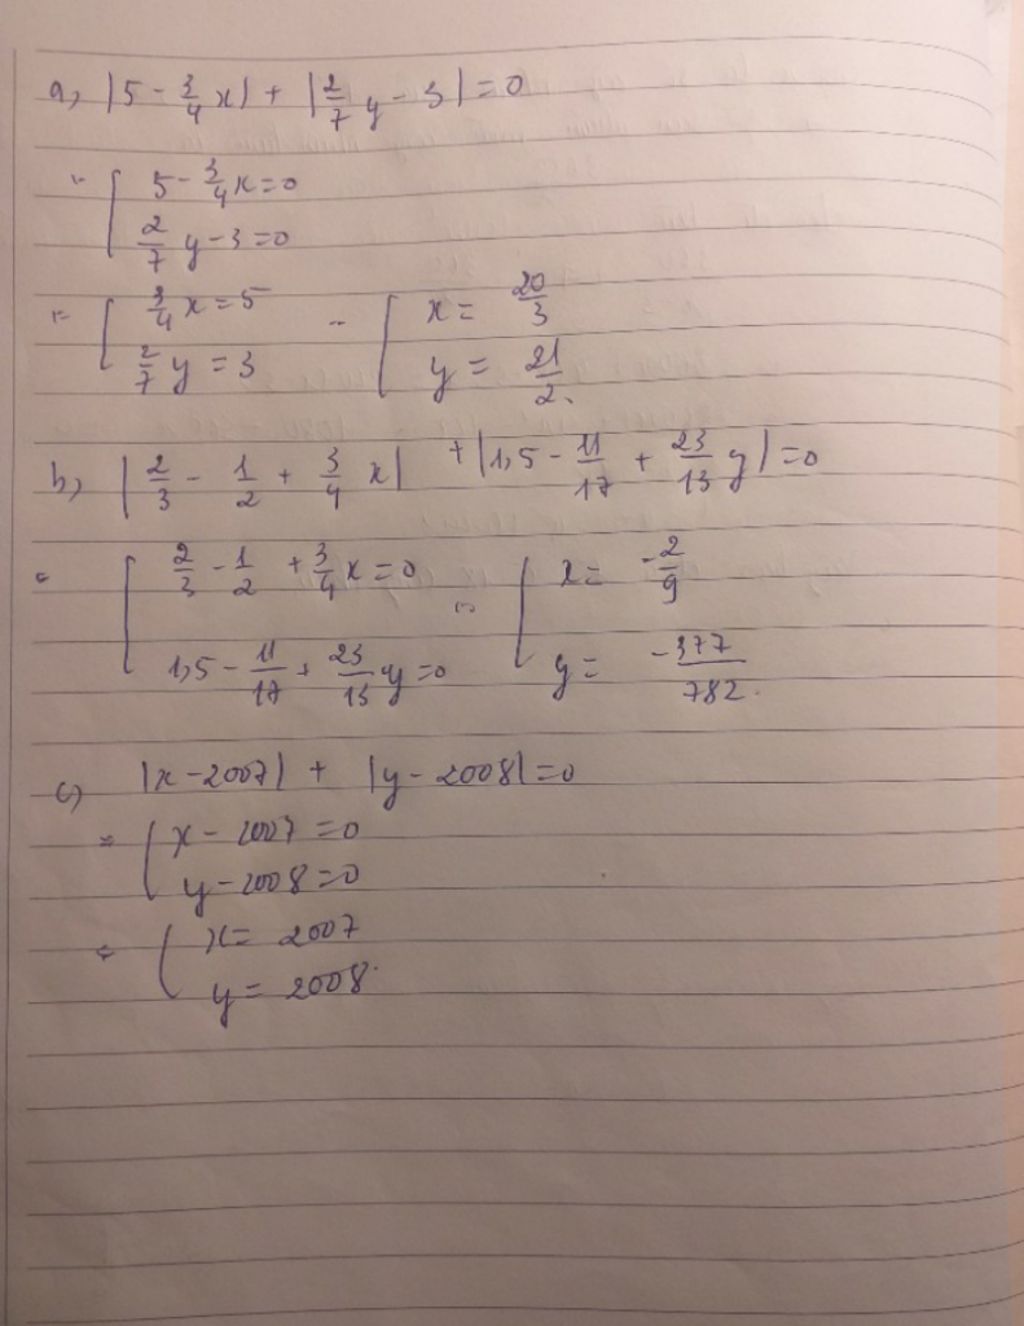 a, |5 - 3/4 x| + |2/7 y - 3| = 0
[ 5 - 3/4 x = 0
2/7 y - 3 = 0
[ 3/4 x = 5 [ x = 20/3
2/7 y = 3 y = 21/2.
b, |2/3 - 1/2 + 3/4 x| + |1,5 - 11/17 + 23/13 y| = 0
[ 2/3 - 1/2 + 3/4 x = 0 [ x = -2/9
1,5 - 11/17 + 23/13 y = 0 y = -377/782.
c) |x - 2007| + |y - 2008| = 0
= [ x - 2007 = 0
y - 2008 = 0
[ x = 2007
y = 2008.